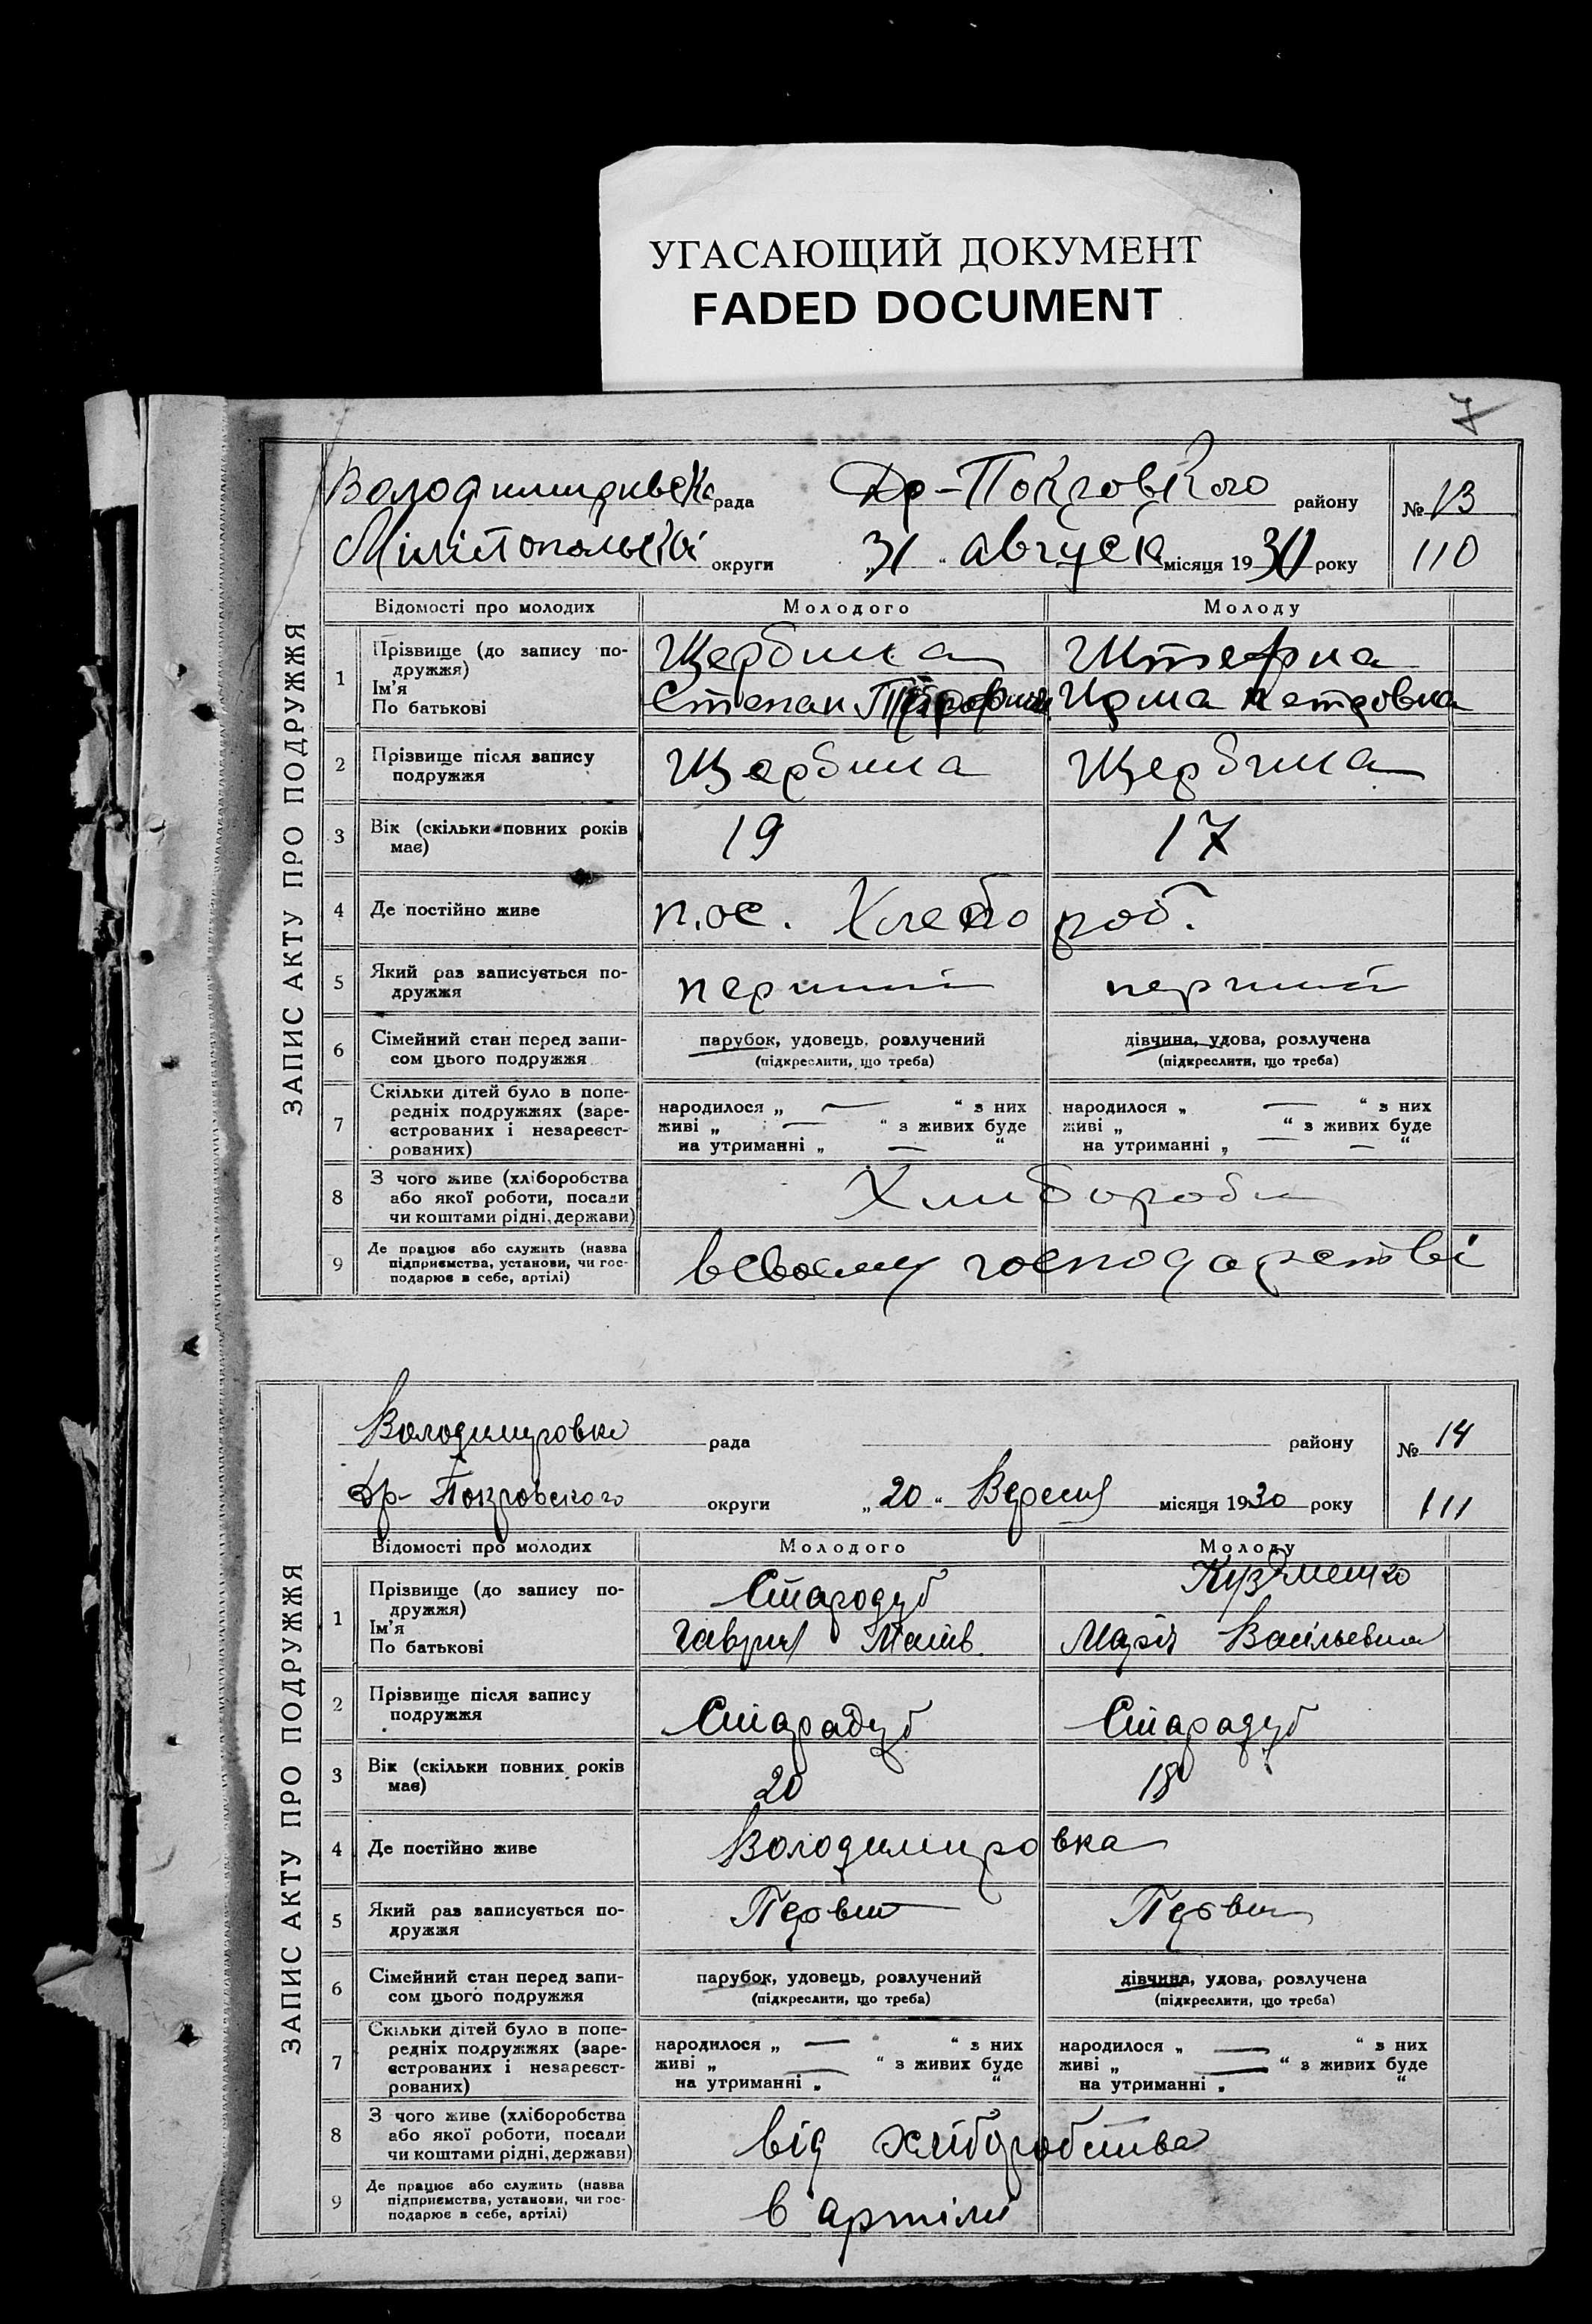 УГАСАЮЩИЙ ДОКУМЕНТ
FADED DOCUMENT
7
ЗАПИС АКТУ ПРО ПОДРУЖЖЯ
рада Др-Покровкого району № 13
округи „31“ августа місяця 1930 року 110
Відомості про молодих Молодого Молоду
1 Прізвище (до запису по- Щербина Штефна
дружжя)
Ім'я Степан Ирма Петровна
По батькові
2 Прізвище після запису Щербина Щербина
подружжя
3 Вік (скільки повних років 19 17
має)
4 Де постійно живе п.ос. Хлебороб.
5 Який раз записується по- перший перший
дружжя
6 Сімейний стан перед запи- парубок, удовець, розлучений дівчина, удова, розлучена
сом цього подружжя (підкреслити, що треба) (підкреслити, що треба)
7 Скільки дітей було в попе- народилося „ — “ з них народилося „ — “ з них
редніх подружжях (заре- живі „ — “ з живих буде живі „ — “ з живих буде
єстрованих і незареєст- на утриманні „ — “ на утриманні „ — “
рованих)
8 З чого живе (хліборобства Хлибороби
або якої роботи, посади
чи коштами рідні, держави)
9 Де працює або служить (назва всвоему господарстві
підприємства, установи, чи гос-
подарює в себе, артілі)
ЗАПИС АКТУ ПРО ПОДРУЖЖЯ
Володимировка рада району № 14
Др- Покровского округи „20“ Вересня місяця 1930 року 111
Відомості про молодих Молодого Молоду
1 Прізвище (до запису по- Стародуб Кузьменко
дружжя)
Ім'я Гаврил Матів. Марія Васільевна
По батькові
2 Прізвище після запису Старадуб Старадуб
подружжя
3 Вік (скільки повних років 20 18
має)
4 Де постійно живе Володимировка
5 Який раз записується по- Первий Первий
дружжя
6 Сімейний стан перед запи- парубок, удовець, розлучений дівчина, удова, розлучена
сом цього подружжя (підкреслити, що треба) (підкреслити, що треба)
7 Скільки дітей було в попе- народилося „ — “ з них народилося „ — “ з них
редніх подружжях (заре- живі „ — “ з живих буде живі „ — “ з живих буде
єстрованих і незареєст- на утриманні „ “ на утриманні „ “
рованих)
8 З чого живе (хліборобства від хліборобства
або якої роботи, посади
чи коштами рідні, держави)
9 Де працює або служить (назва в артілі
підприємства, установи, чи гос-
подарює в себе, артілі)